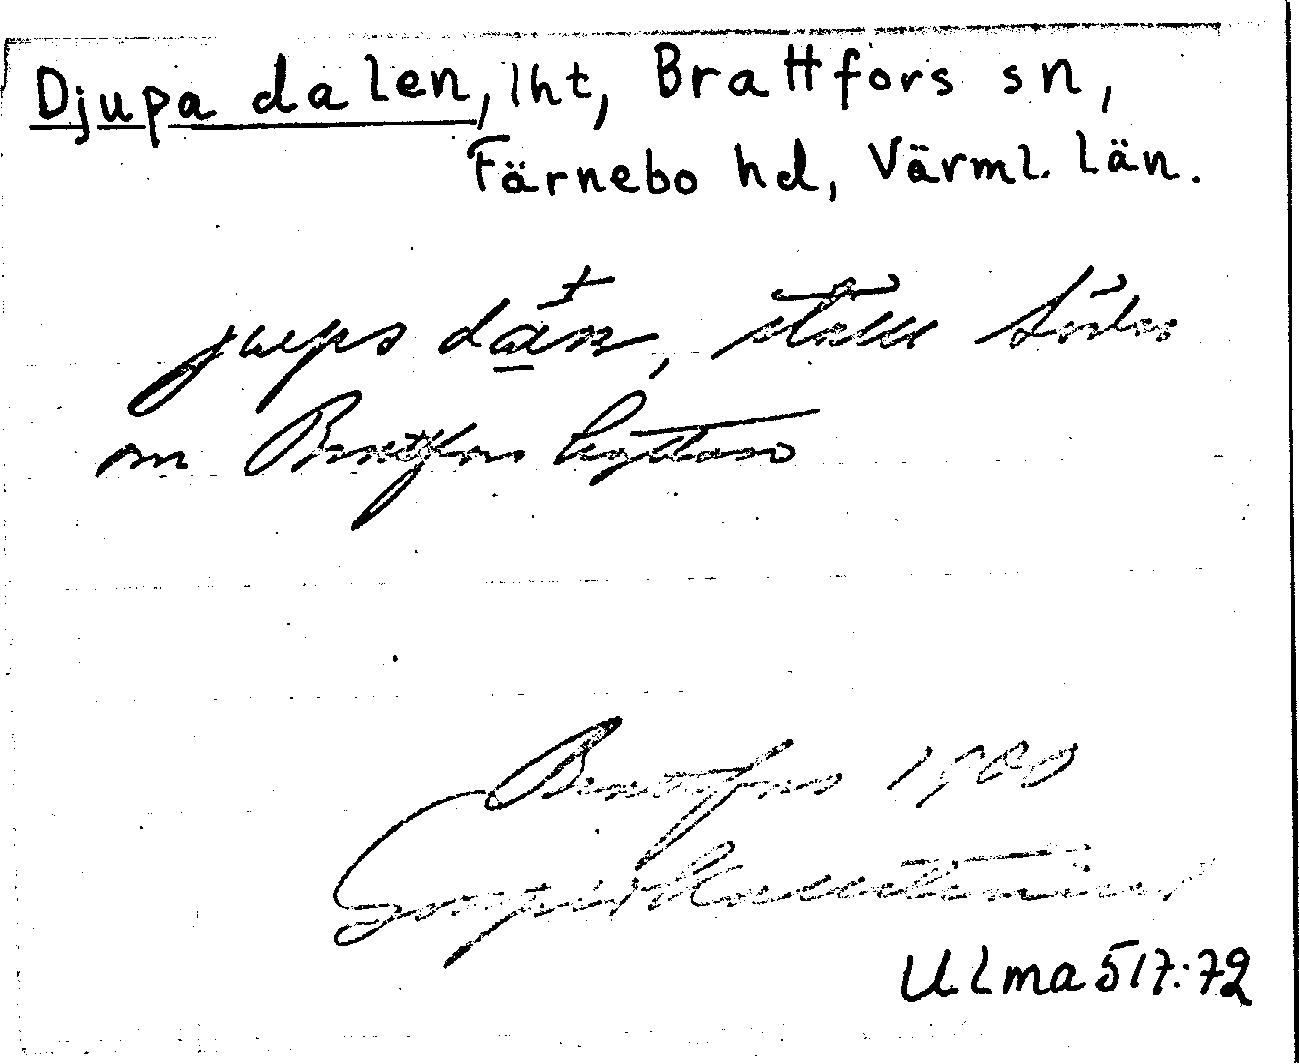 Djupa dalen, lht, Brattfors sn,
Färnebo hd, Värml. län.
ställe söder
om Brattfors hyttan
Brattfors 1908
Ulma 517:72